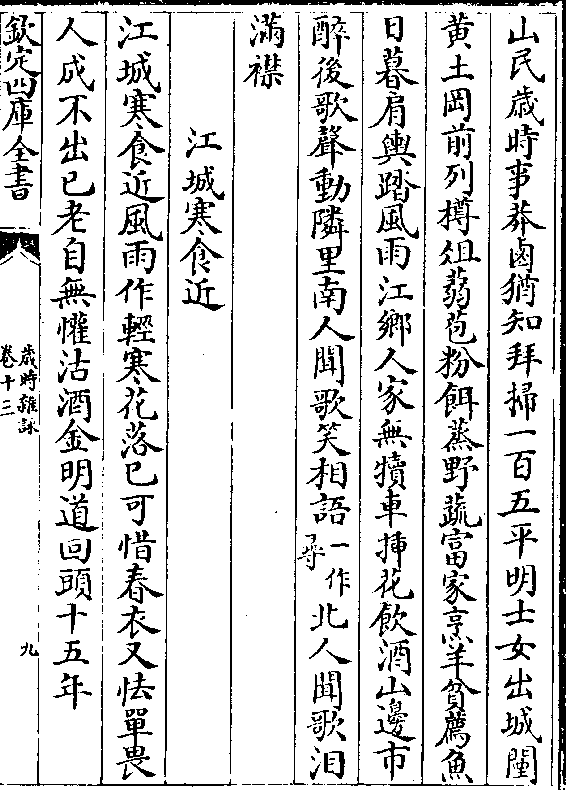 山民歳時事莽鹵猶知拜掃一百五平明士女出城闉
黄土岡前列樽俎蒻苞粉餌蒸野蔬富家烹羊貧薦魚
日暮肩輿踏風雨江鄉人家無犢車揷花飲酒山邊市
醉後歌聲動隣里南人聞歌笑相語一作尋北人聞歌淚
滿襟
江城寒食近
江城寒食近風雨作輕寒花落已可惜春衣又怯單畏
人成不出已老自無懽沽酒金明道回頭十五年
欽定四庫全書
歳時雜詠
卷十三
九